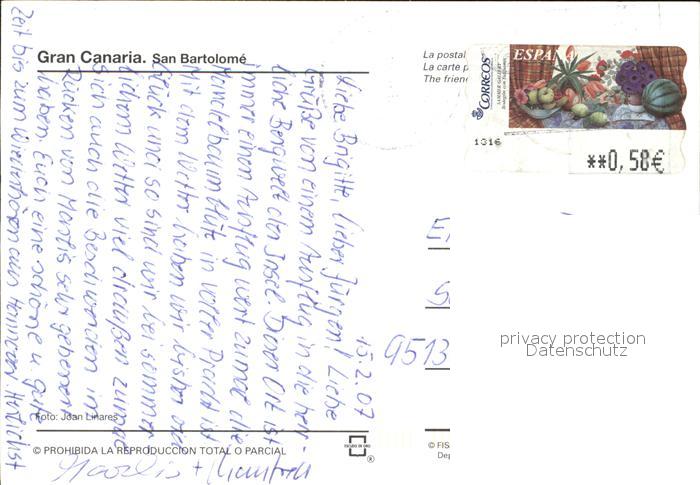 Gran Canaria. San Bartolomé
La postal
La carte p
The frien
CORREOS
ESPAÑ
1316
**0,58€
15.2.07
Liebe Brigitte, lieber Jürgen! Liebe
Grüße von einem Ausflug in die herr-
liche Bergwelt der Insel. Dieser Ort ist
immer einen Ausflug wert zumal die
Mandelbaumblüte in voller Pracht ist
Mit dem Wetter haben wir bisher das
Glück und so sind wir bei sommer-
lichem Wetter viel draußen zumal
sich auch die Beschwerden im
Rücken von Marlis sehr gebessert
haben. Euch eine schöne u. gute
Zeit bis zum Wiederhören aus Herzlichst
Marlis + Manfred
9513
privacy protection
Datenschutz
Foto: Joan Linares
ESCUDO DE ORO
®
© PROHIBIDA LA REPRODUCCION TOTAL O PARCIAL
© FIS
Dep